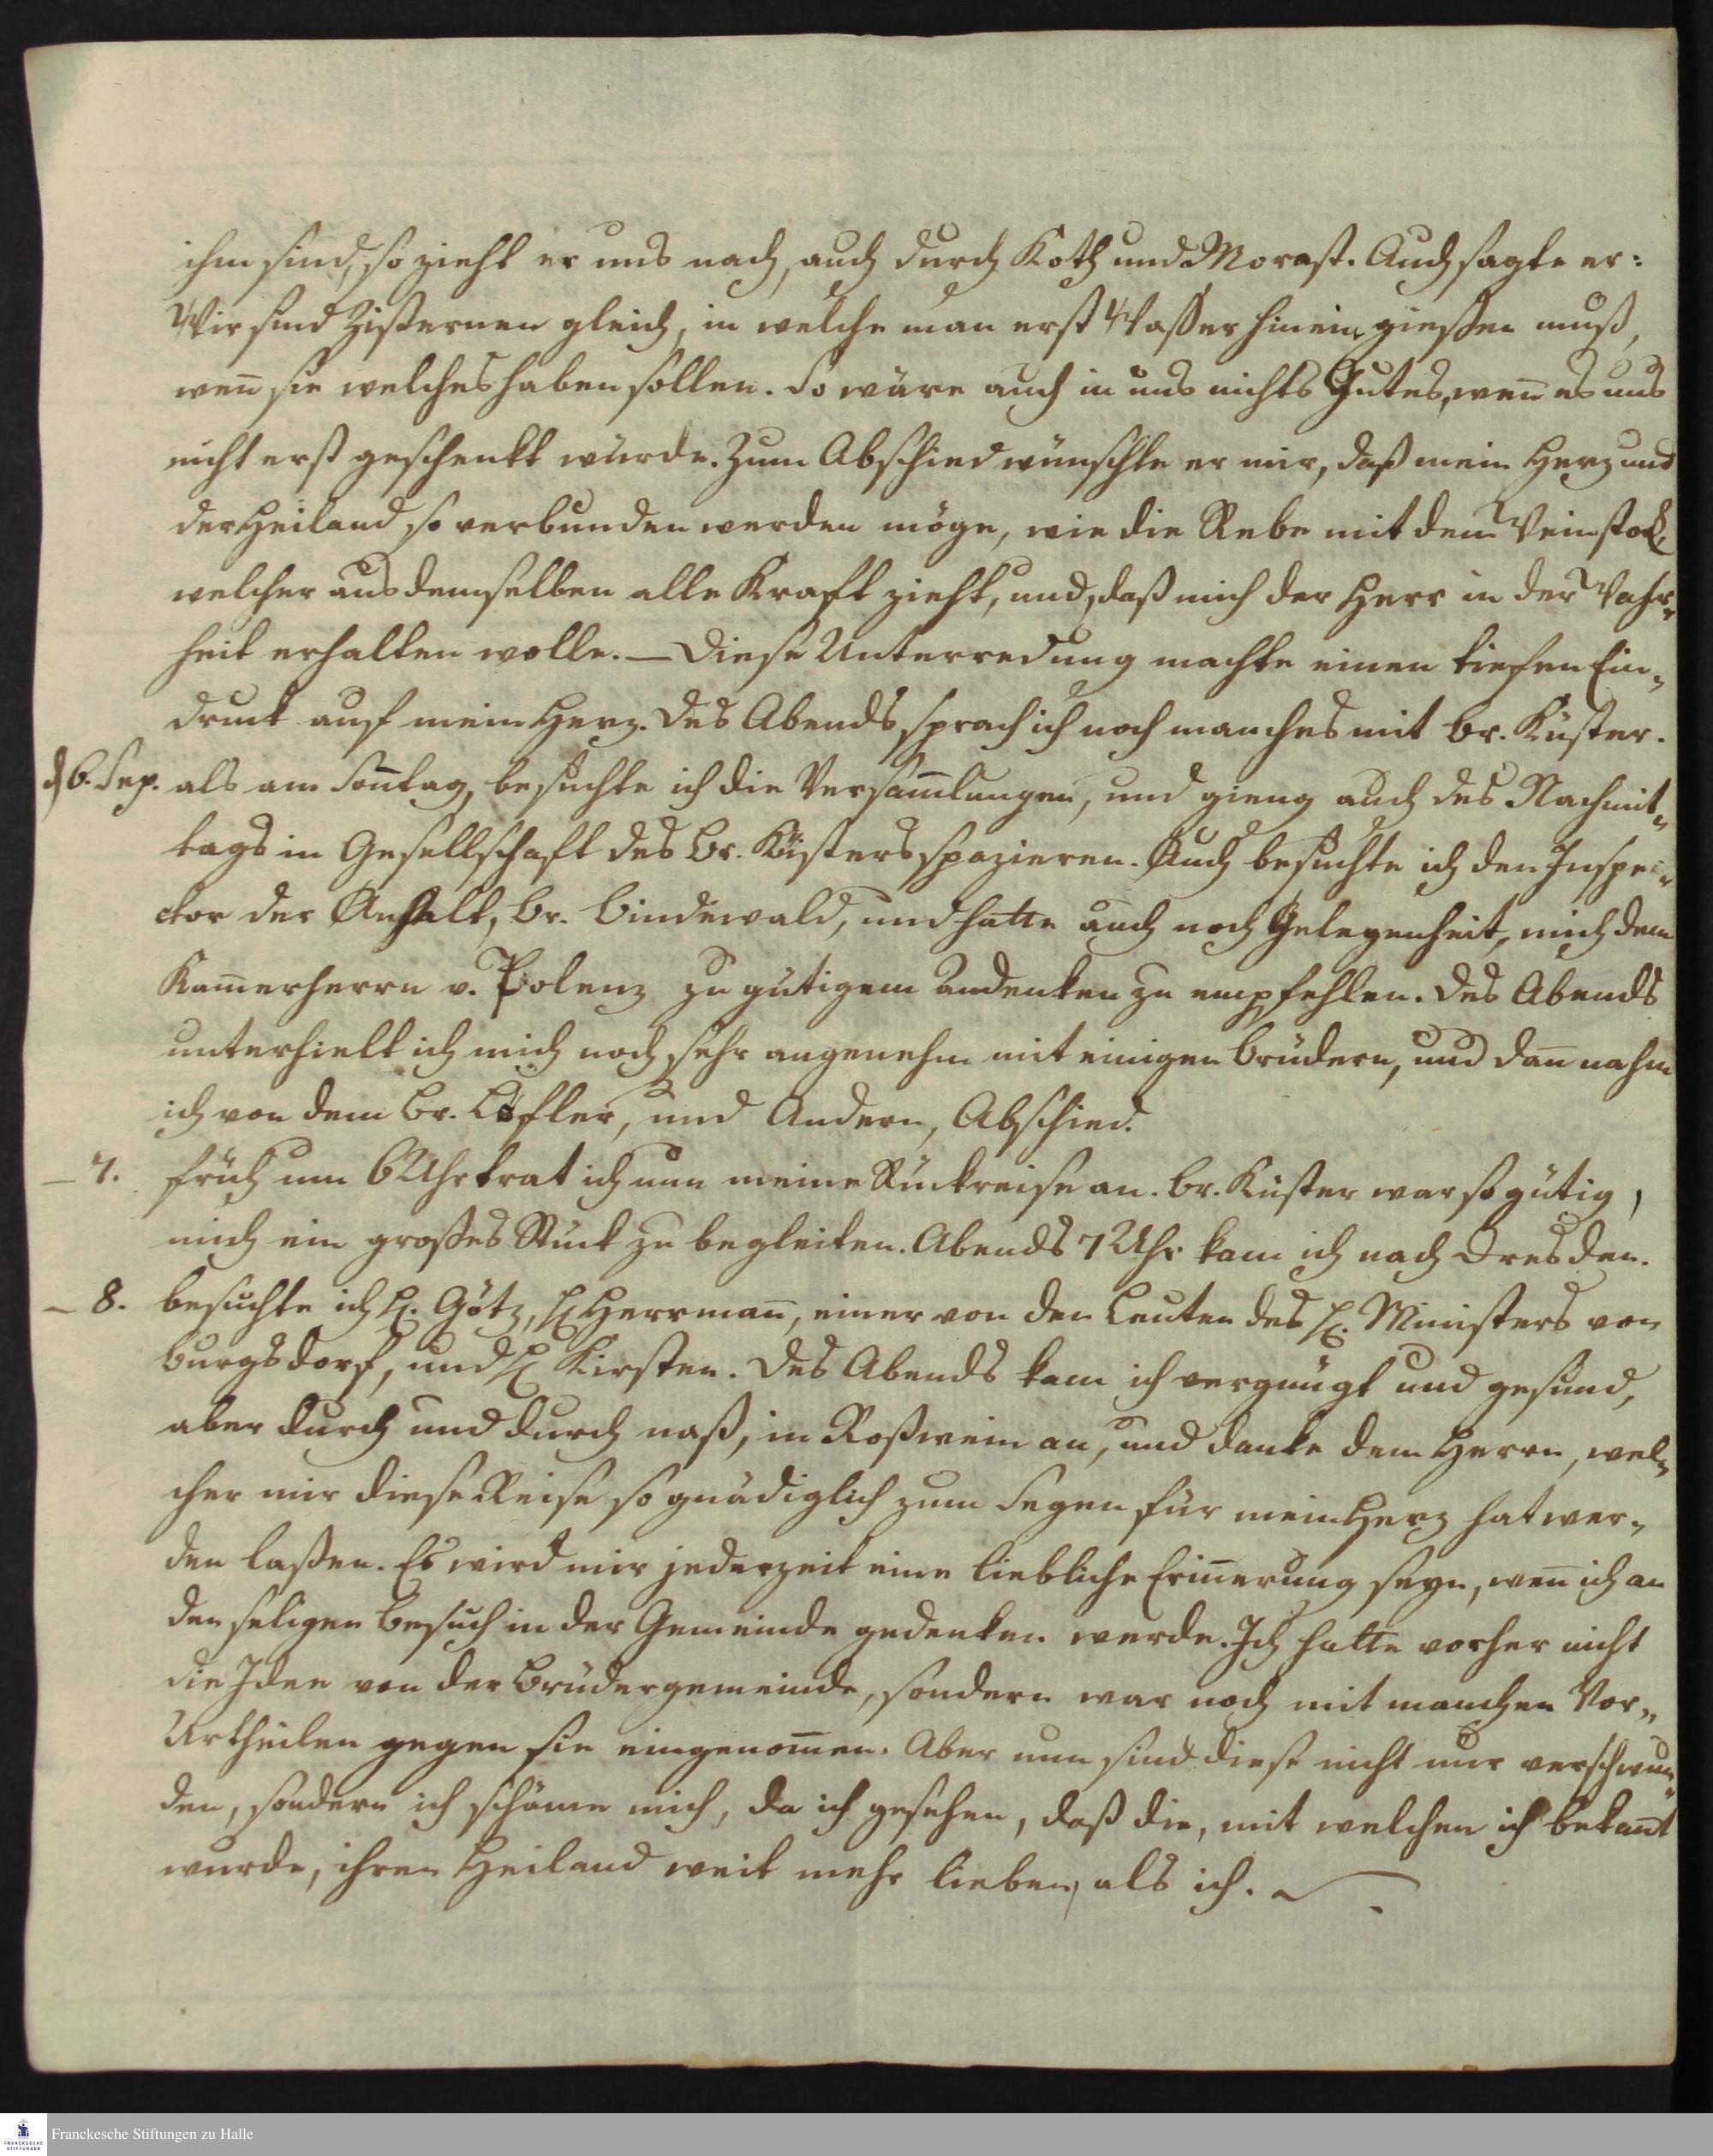 ihm sind, so zieht er uns nach, auch durch Koth und Morast. Auch sagte er:
Wir sind Zisternen gleich, in welche man erst Waßer hinein gießen muß,
weñ sie welches haben sollen. So wäre auch in uns nichts Gutes, weñ es uns
nicht erst geschenkt würde. Zum Abschied wünschte er mir, daß mein Herz und
der Heiland so verbunden werden möge, wie die Rebe mit dem Weinstock,
welcher aus demselben alle Kraft zieht, und, daß mich der Herr in der Wahr„
heit erhalten wolle. — Diese Unterredung machte einen tiefen Ein„
druck auf mein Herz. Des Abends sprach ich noch manches mit Br. Küster.
d 6. Sep. als am Soñtag, besuchte ich die Versam̃lungen, und gieng auch des Nachmit„
tags in Gesellschaft des Br. Küsters spazieren. Auch besuchte ich den Inspe„
ctor der Anstalt, Br. Bindewald, und hatte auch noch Gelegenheit, mich dem
Kam̃erherrn v. Polenz zu gütigem Andenken zu empfehlen. Des Abends
unterhielt ich mich noch sehr angenehm mit einigen Brüdern, und dañ nahm
ich von dem Br. Löfler, und Andern, Abschied.
— 7. früh um 6 Uhr trat ich nun meine Rückreise an. Br. Küster war so gütig,
mich ein großes Stück zu begleiten. Abends 7 Uhr kam ich nach Dresden.
— 8. besuchte ich H. Götz, H Herrmañ, einer von den Leuten des H. Ministers von
Burgsdorf, und H Kirsten. Des Abends kam ich vergnügt und gesund,
aber durch und durch naß, in Roßwein an, und danke dem Herrn, wel„
cher mir diese Reise so gnädiglich zum Segen für mein Herz hat wer„
den laßen. Es wird mir jederzeit eine liebliche Eriñerung seyn, weñ ich an
den seligen Besuch in der Gemeinde gedenken werde. Ich hatte vorher nicht
die Idee von der Brüdergemeinde, sondern war noch mit manchen Vor„
Urtheilen gegen sie eingenom̃en. Aber nun sind diese nicht nur verschwun„
den, sondern ich schäme mich, da ich gesehen, daß die, mit welchen ich bekañt
wurde, ihren Heiland weit mehr lieben, als ich.
Franckesche Stiftungen zu Halle
FRANCKESCHE
STIFTUNGEN